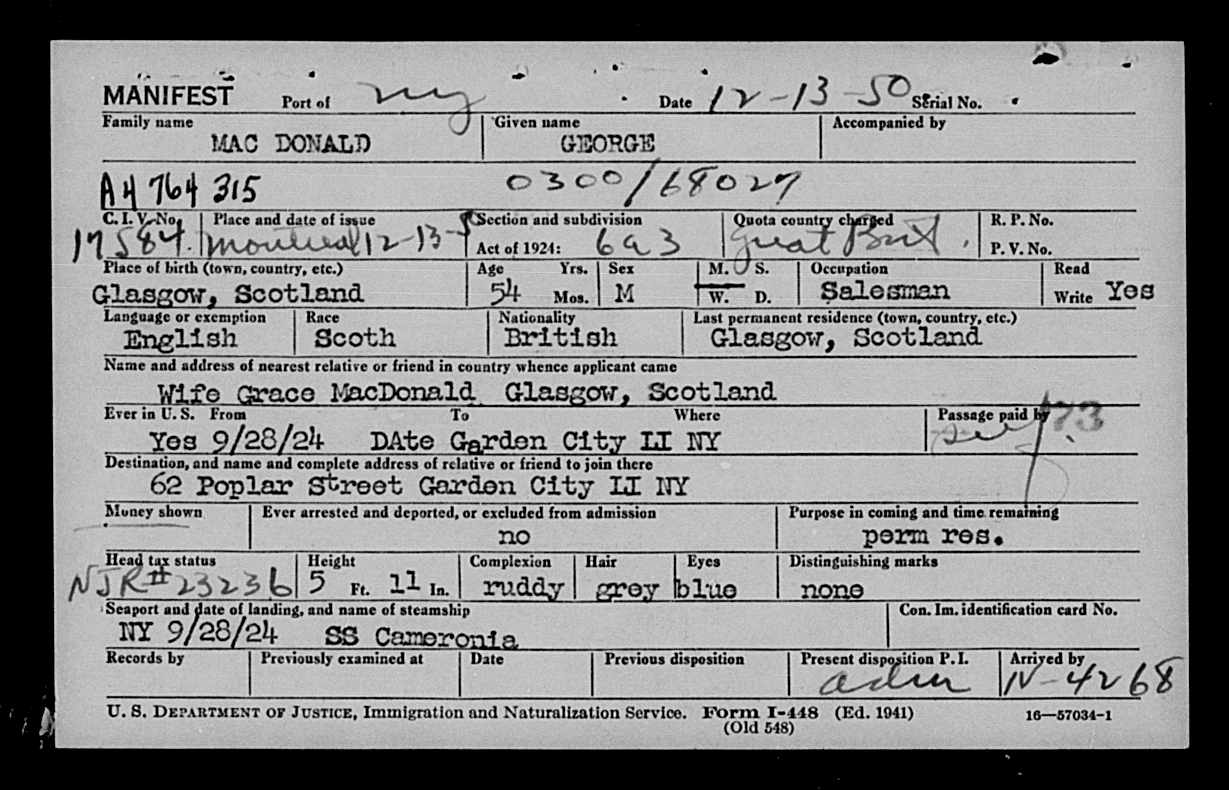 MANIFEST Port of NY Date 12-13-50 Serial No.
Family name Given name Accompanied by
MAC DONALD GEORGE
A4 764 315 0300/68027
C. I. V. No. Place and date of issue Section and subdivision Quota country charged R. P. No.
17584. Montreal 12-13-5 Act of 1924: 6a3 Great Brit. P. V. No.
Place of birth (town, country, etc.) Age Yrs. Sex M. S. Occupation Read
Glasgow, Scotland 54 Mos. M W. D. Salesman Write Yes
Language or exemption Race Nationality Last permanent residence (town, country, etc.)
English Scoth British Glasgow, Scotland
Name and address of nearest relative or friend in country whence applicant came
Wife Grace MacDonald Glasgow, Scotland
Ever in U. S. From To Where Passage paid by
Yes 9/28/24 DAte Garden City LI NY self 73
Destination, and name and complete address of relative or friend to join there
62 Poplar Street Garden City LI NY
Money shown Ever arrested and deported, or excluded from admission Purpose in coming and time remaining
no perm res.
Head tax status Height Complexion Hair Eyes Distinguishing marks
NJR# 23236 5 Ft. 11 In. ruddy grey blue none
Seaport and date of landing, and name of steamship Con. Im. identification card No.
NY 9/28/24 SS Cameronia
Records by Previously examined at Date Previous disposition Present disposition P. I. Arrived by
adm N-4268
U. S. DEPARTMENT OF JUSTICE, Immigration and Naturalization Service. Form I-448 (Ed. 1941) 16—57034-1
(Old 548)